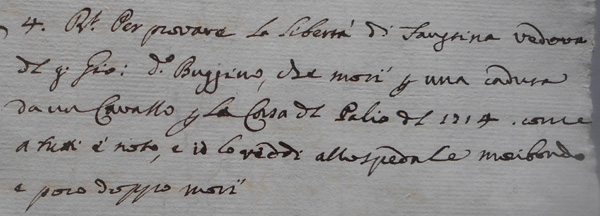 4. Rt. Per provare la libertà di Faustina vedova
del q. Gio: do. Buggino, che morì p una caduta
da un Cavallo p la Corsa del Palio del 1714. come
a tutti è noto, e io lo veddi allo spedale moribondo
e poco doppo morì